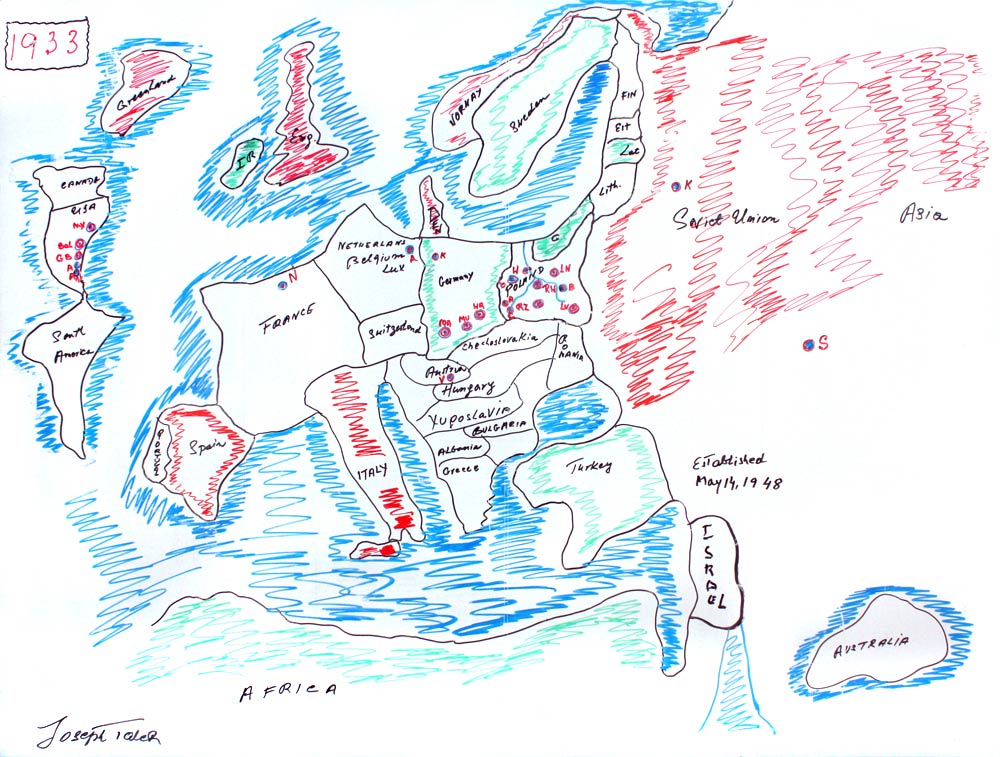 1933
GreenLand
IR
Eng
NORWAY
Sweden
FIN
Est
Lat
Lith.
CANADA
USA
NY
Bal
GB
A
South
America
K
Soviet Union
Asia
NETHERLAND
Belgium
Lux
A
K
Germany
G
POLAND
W
LN
B
RW
RZ
LV
MU
WR
N
FRANCE
Switzerland
Checloslovakia
RO
MANIA
Austria
V
Hungary
Yuposlavia
BULGARIA
Albania
Greece
S
Spain
ITALY
Turkey
Established
May 14, 1948
ISRAEL
AUSTRALIA
AFRICA
Joseph Taler